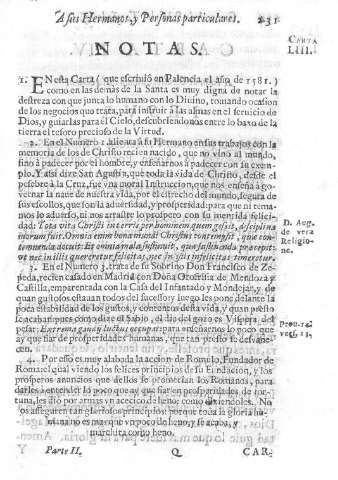 A sus Hermanos, y Personas particulares. 231
CARTA
LIII.
NOTAS.
1. EN esta Carta (que escriuiò en Palencia el año de 1581.)
como en las demàs de la Santa es muy digna de notar la
destreza con que junta lo humano con lo Diuino, tomando ocasion
de los negocios que trata, para instruir à las almas en el seruicio de
Dios, y guiarlas para el Cielo, descubriendonos entre lo baxo de la
tierra el tesoro precioso de la Virtud.
2. En el Numero 2. alienta à su Hermano en sus trabajos con la
memoria de los de Christo recien nacido, que no vino al mundo,
sino à padecer por el hombre, y enseñarnos à padecer con su exem-
plo. Y assi dize San Agustin, que toda la vida de Christo, desde el
pesebre à la Cruz, fue vna moral Instruccion, que nos enseña à go-
vernar la naue de nuestra vida, por el estrecho del mundo, segura de
sus escollos, que son la aduersidad, y prosperidad; para que ni tema-
mos lo aduerso, ni nos arrastre lo prospero con su mentida felici-
dad: Tota vita Christi in terris per hominem quem gessit, disciplina
morum fuit. Omnia enim bona mundi Christus contempsit, quæ con-
temnenda docuit: Et omnia mala sustinuit, quæ sustinenda præcepit:
vt nec in illis quæreretur felicitas, nec in istis infelicitas timeretur.
D. Aug.
de vera
Religio-
ne.
3. En el Numero 3. trata de su Sobrino Don Francisco de Ze-
peda, recien casado en Madrid con Doña Orofrisia de Mendoza y
Castilla, emparentada con la Casa del Infantado y Mondejar, y de
quan gustosos estauan todos del sucesso; y luego les pone delante la
poca estabilidad de los gustos, y contentos desta vida, y quan presto
se acaban; pues como dize el Sabio, el dia del gozo es Vispera del
pesar: Extrema gaudij luctus occupat: para enseñarnos lo poco que
ay que fiar de prosperidades humanas, que tan presto se desvane-
cen.
Prou. 14.
vers. 13.
4. Por esto es muy alabada la accion de Romulo, Fundador de
Roma: el qual viendo los felices principios de su Fundacion, y los
prosperos anuncios que dellos se prometian los Romanos, para
darles à entender lo poco que ay que fiar en prosperidades de for-
tuna, les dio por armas vn aecico de heno; como diziendoles. No
os asseguren tan gloriosos principios; porque toda la gloria hu-
mana no es mas que vn poco de heno, y se acaba, y
marchita como heno.
Parte II. Q CAR-